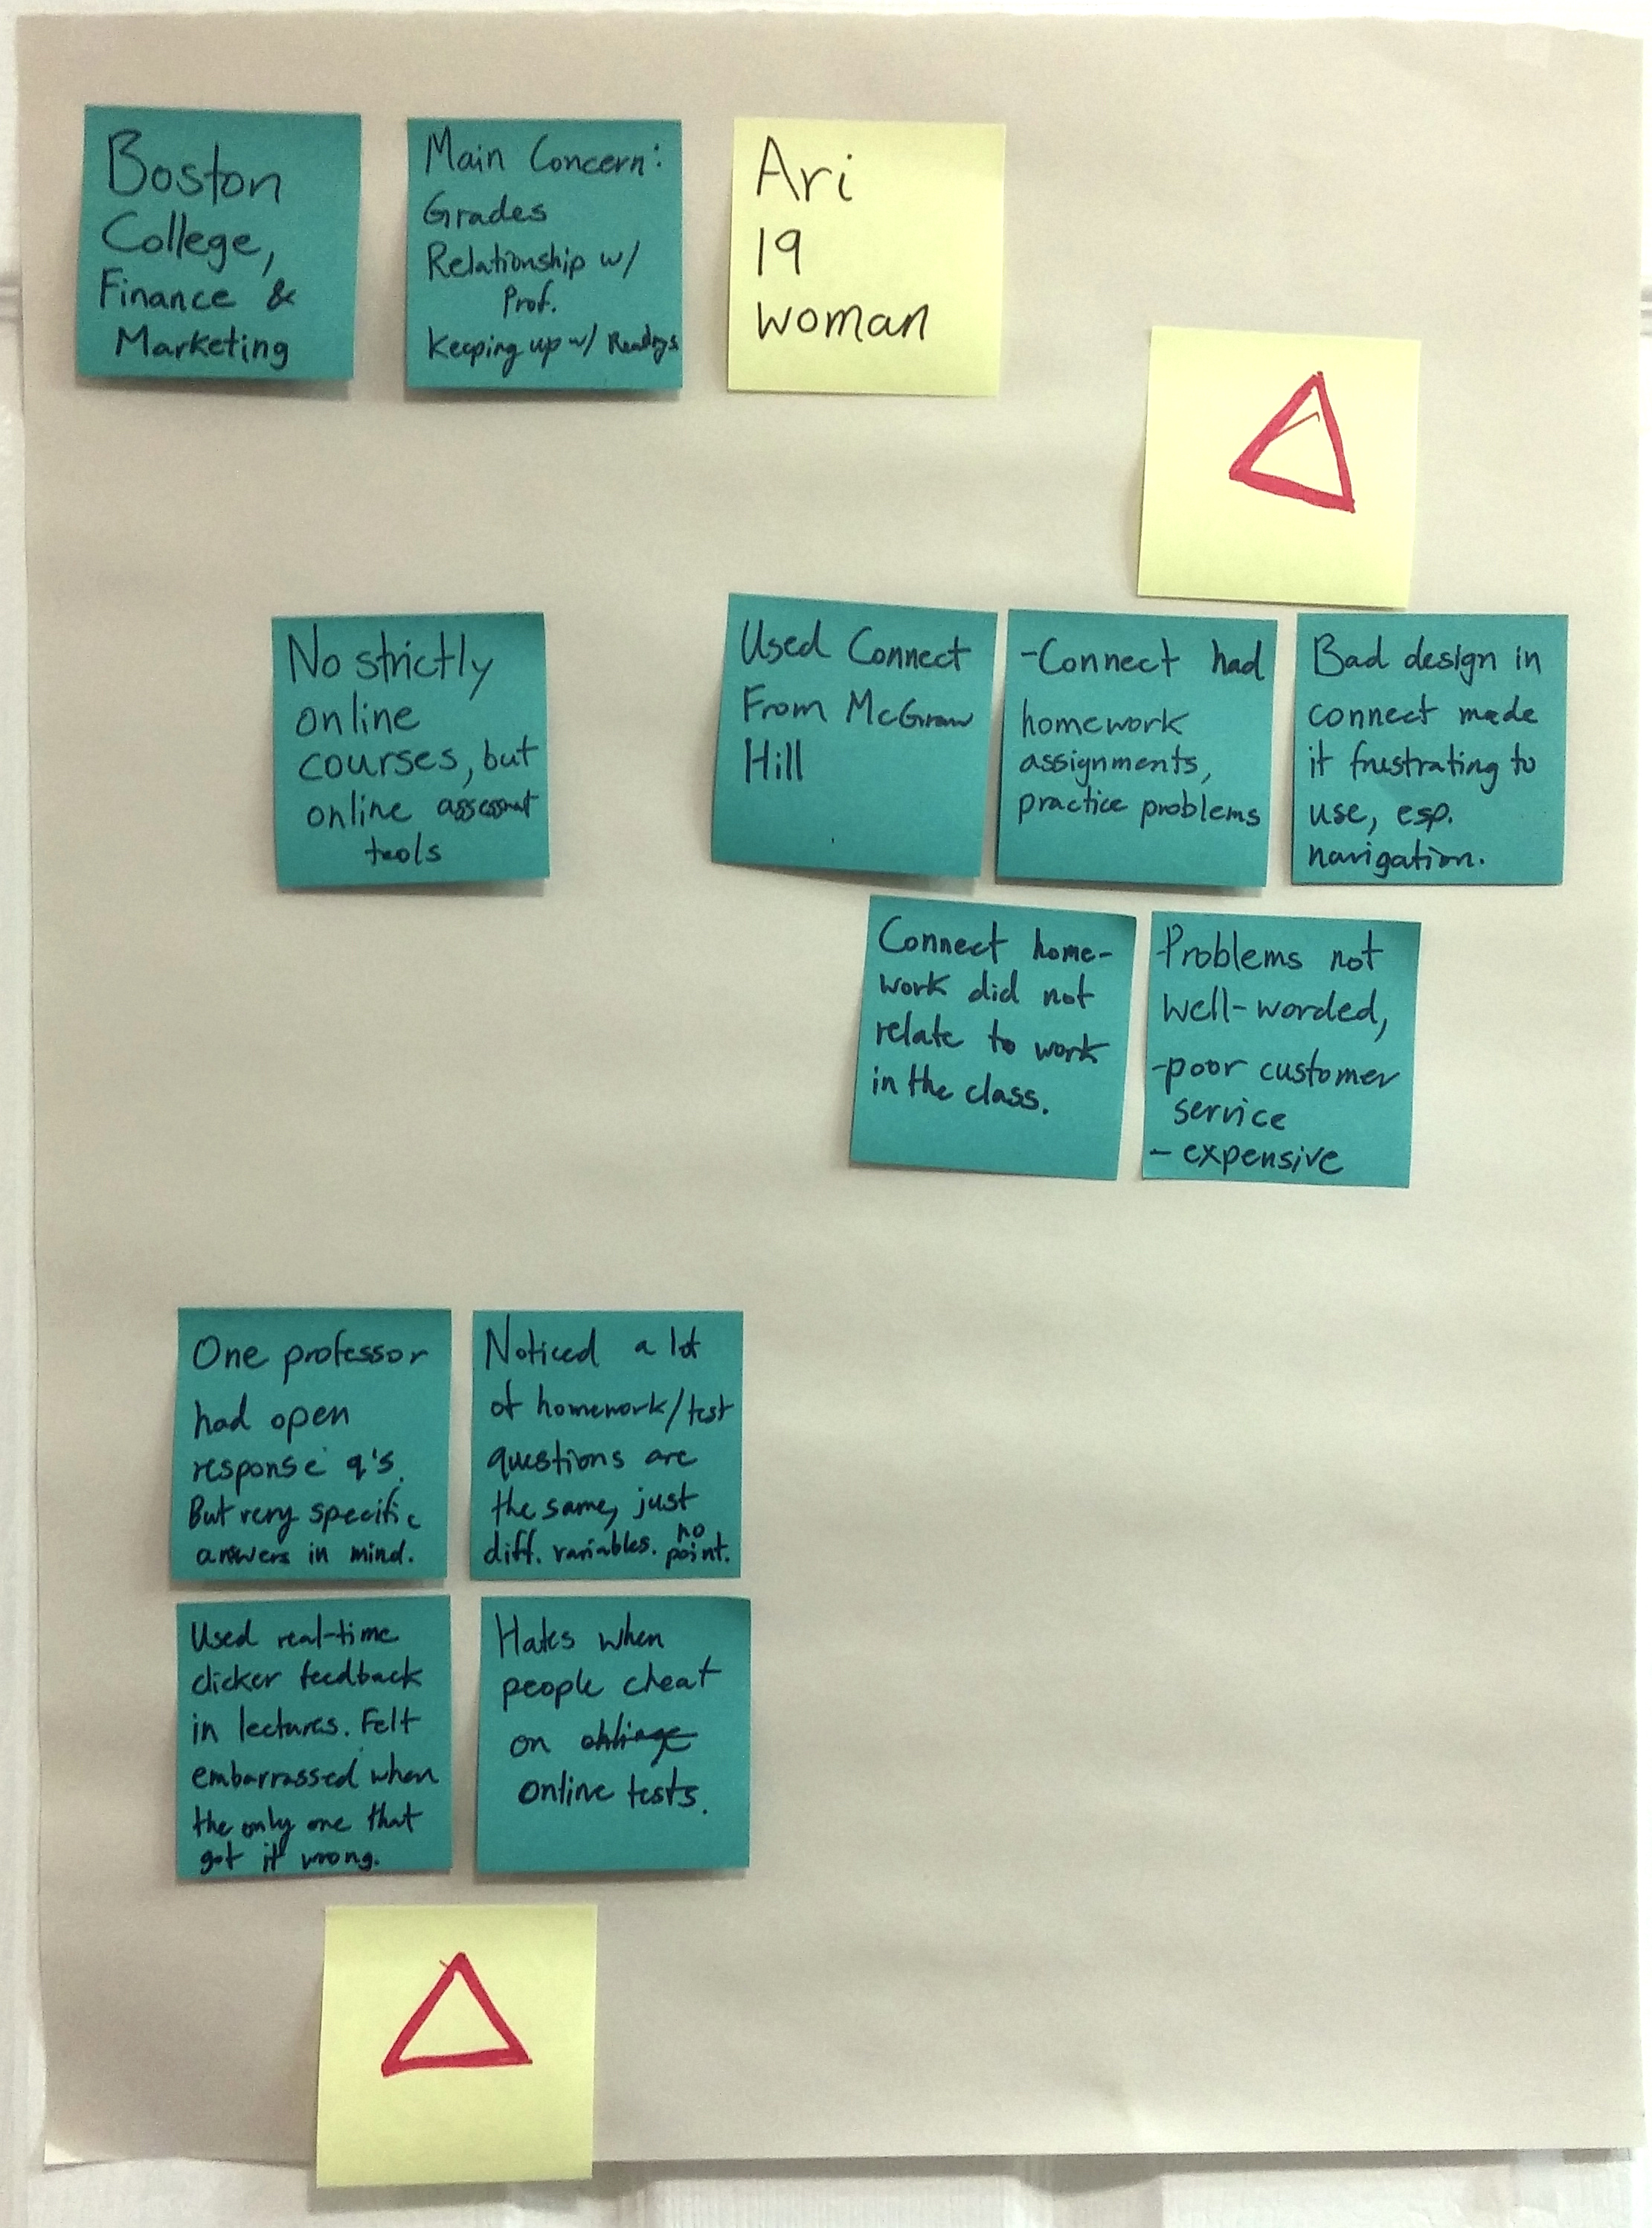 Boston
College,
Finance &
Marketing
Main Concern:
Grades
Relationship w/
Prof.
Keeping up w/ Readings
Ari
19
woman
No strictly
online
courses, but
online assessment
tools
Used Connect
From McGraw
Hill
-Connect had
homework
assignments,
practice problems
Bad design in
connect made
it frustrating to
use, esp.
navigation.
Connect home-
work did not
relate to work
in the class.
-Problems not
well-worded,
-poor customer
service
- expensive
One professor
had open
response q's.
But very specific
answers in mind.
Noticed a lot
of homework/test
questions are
the same, just
diff. variables. no
point.
Used real-time
clicker feedback
in lectures. Felt
embarrassed when
the only one that
got it wrong.
Hates when
people cheat
on
online tests.